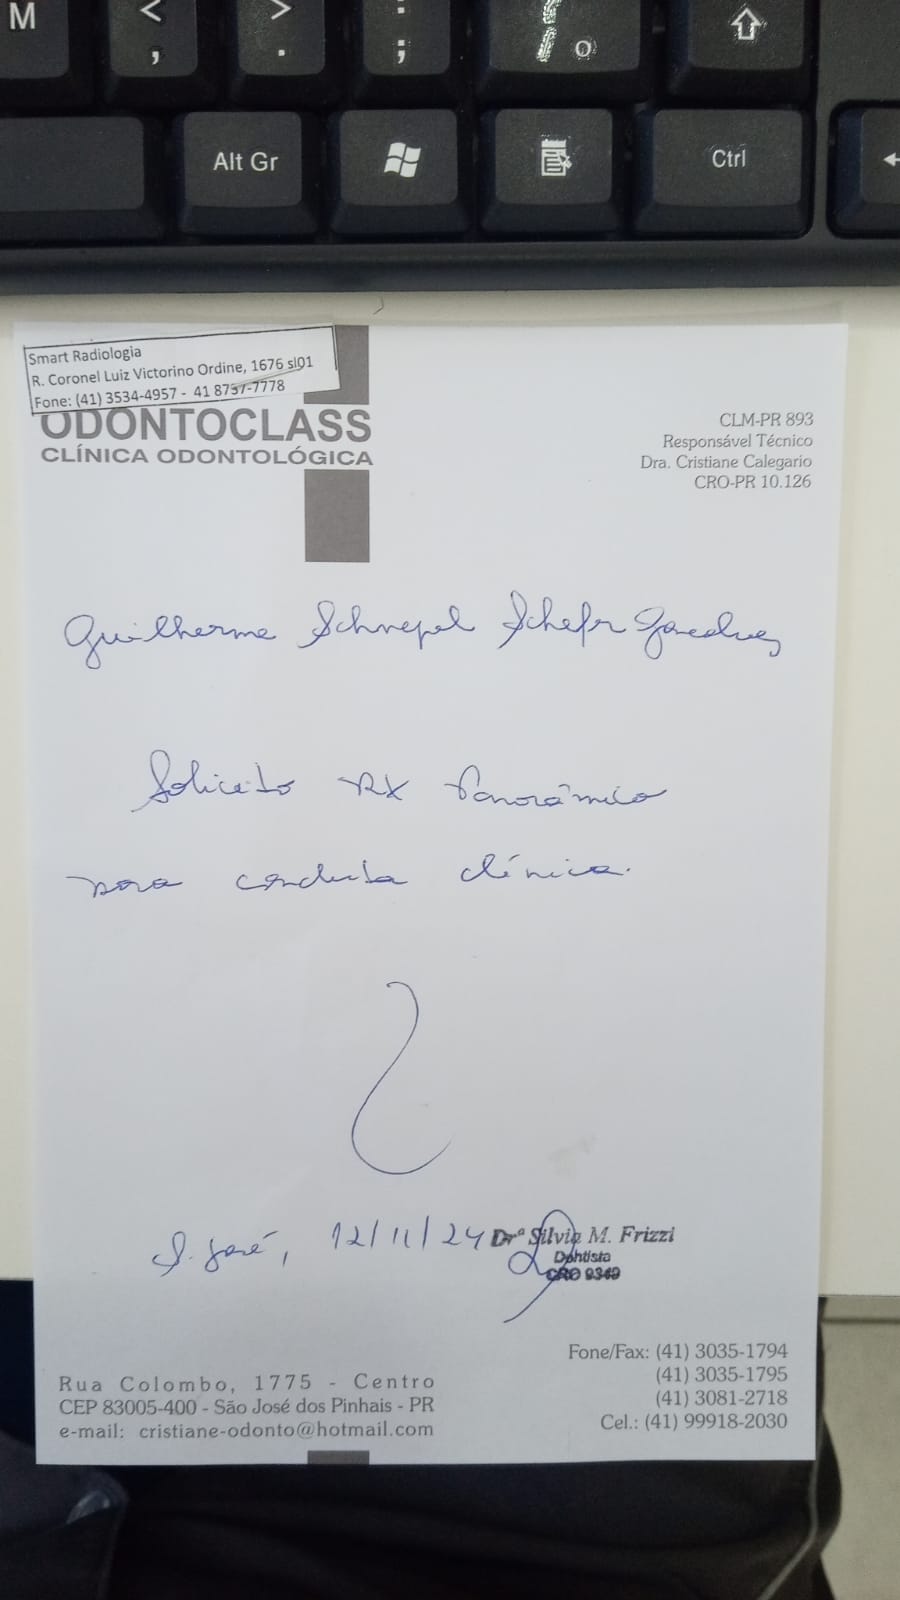 M < , > . : ; / º ⇧
Alt Gr Ctrl ←
Smart Radiologia
R. Coronel Luiz Victorino Ordine, 1676 sl01
Fone: (41) 3534-4957 - 41 8737-7778
ODONTOCLASS
CLÍNICA ODONTOLÓGICA
CLM-PR 893
Responsável Técnico
Dra. Cristiane Calegario
CRO-PR 10.126
Guilherme Schnepel Schefr Goncalves
Solicito RX Panorâmico
para conduta clínica.
S. José, 12/11/24
Drª Silvia M. Frizzi
Dentista
CRO 9349
Fone/Fax: (41) 3035-1794
(41) 3035-1795
(41) 3081-2718
Cel.: (41) 99918-2030
Rua Colombo, 1775 - Centro
CEP 83005-400 - São José dos Pinhais - PR
e-mail: cristiane-odonto@hotmail.com